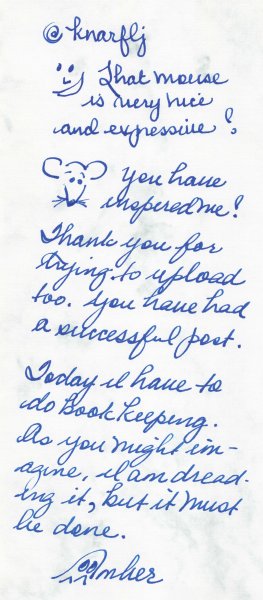 @knarflj
That mouse
is very nice
and expressive!
you have
inspered me!
Thank you for
trying to upload
too. you have had
a successful post.
Today I have to
do bookkeeping.
As you might im-
agine, I am dread-
ing it, but it must
be done.
Amber